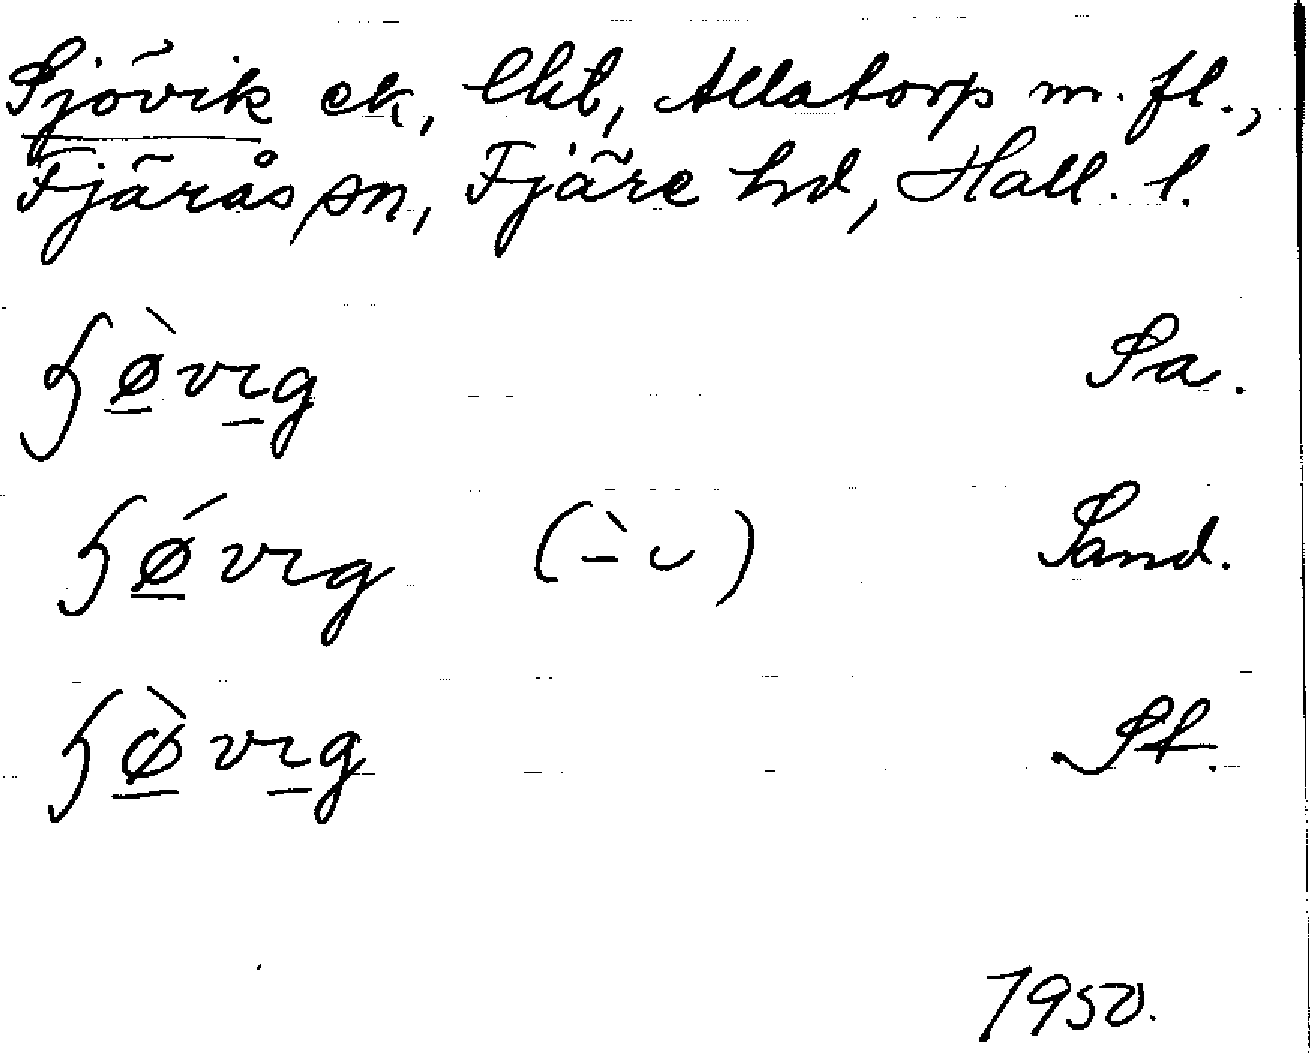 Sjövik ek, lht, Allatorp m. fl.,
Fjärås sn, Fjäre hd, Hall. l.
ɧø̠̀vɪ̠g Sa.
ɧǿ̠vɪg (-̀ ᴗ) Sand.
ɧø̠̀vɪ̠g St.
1950.